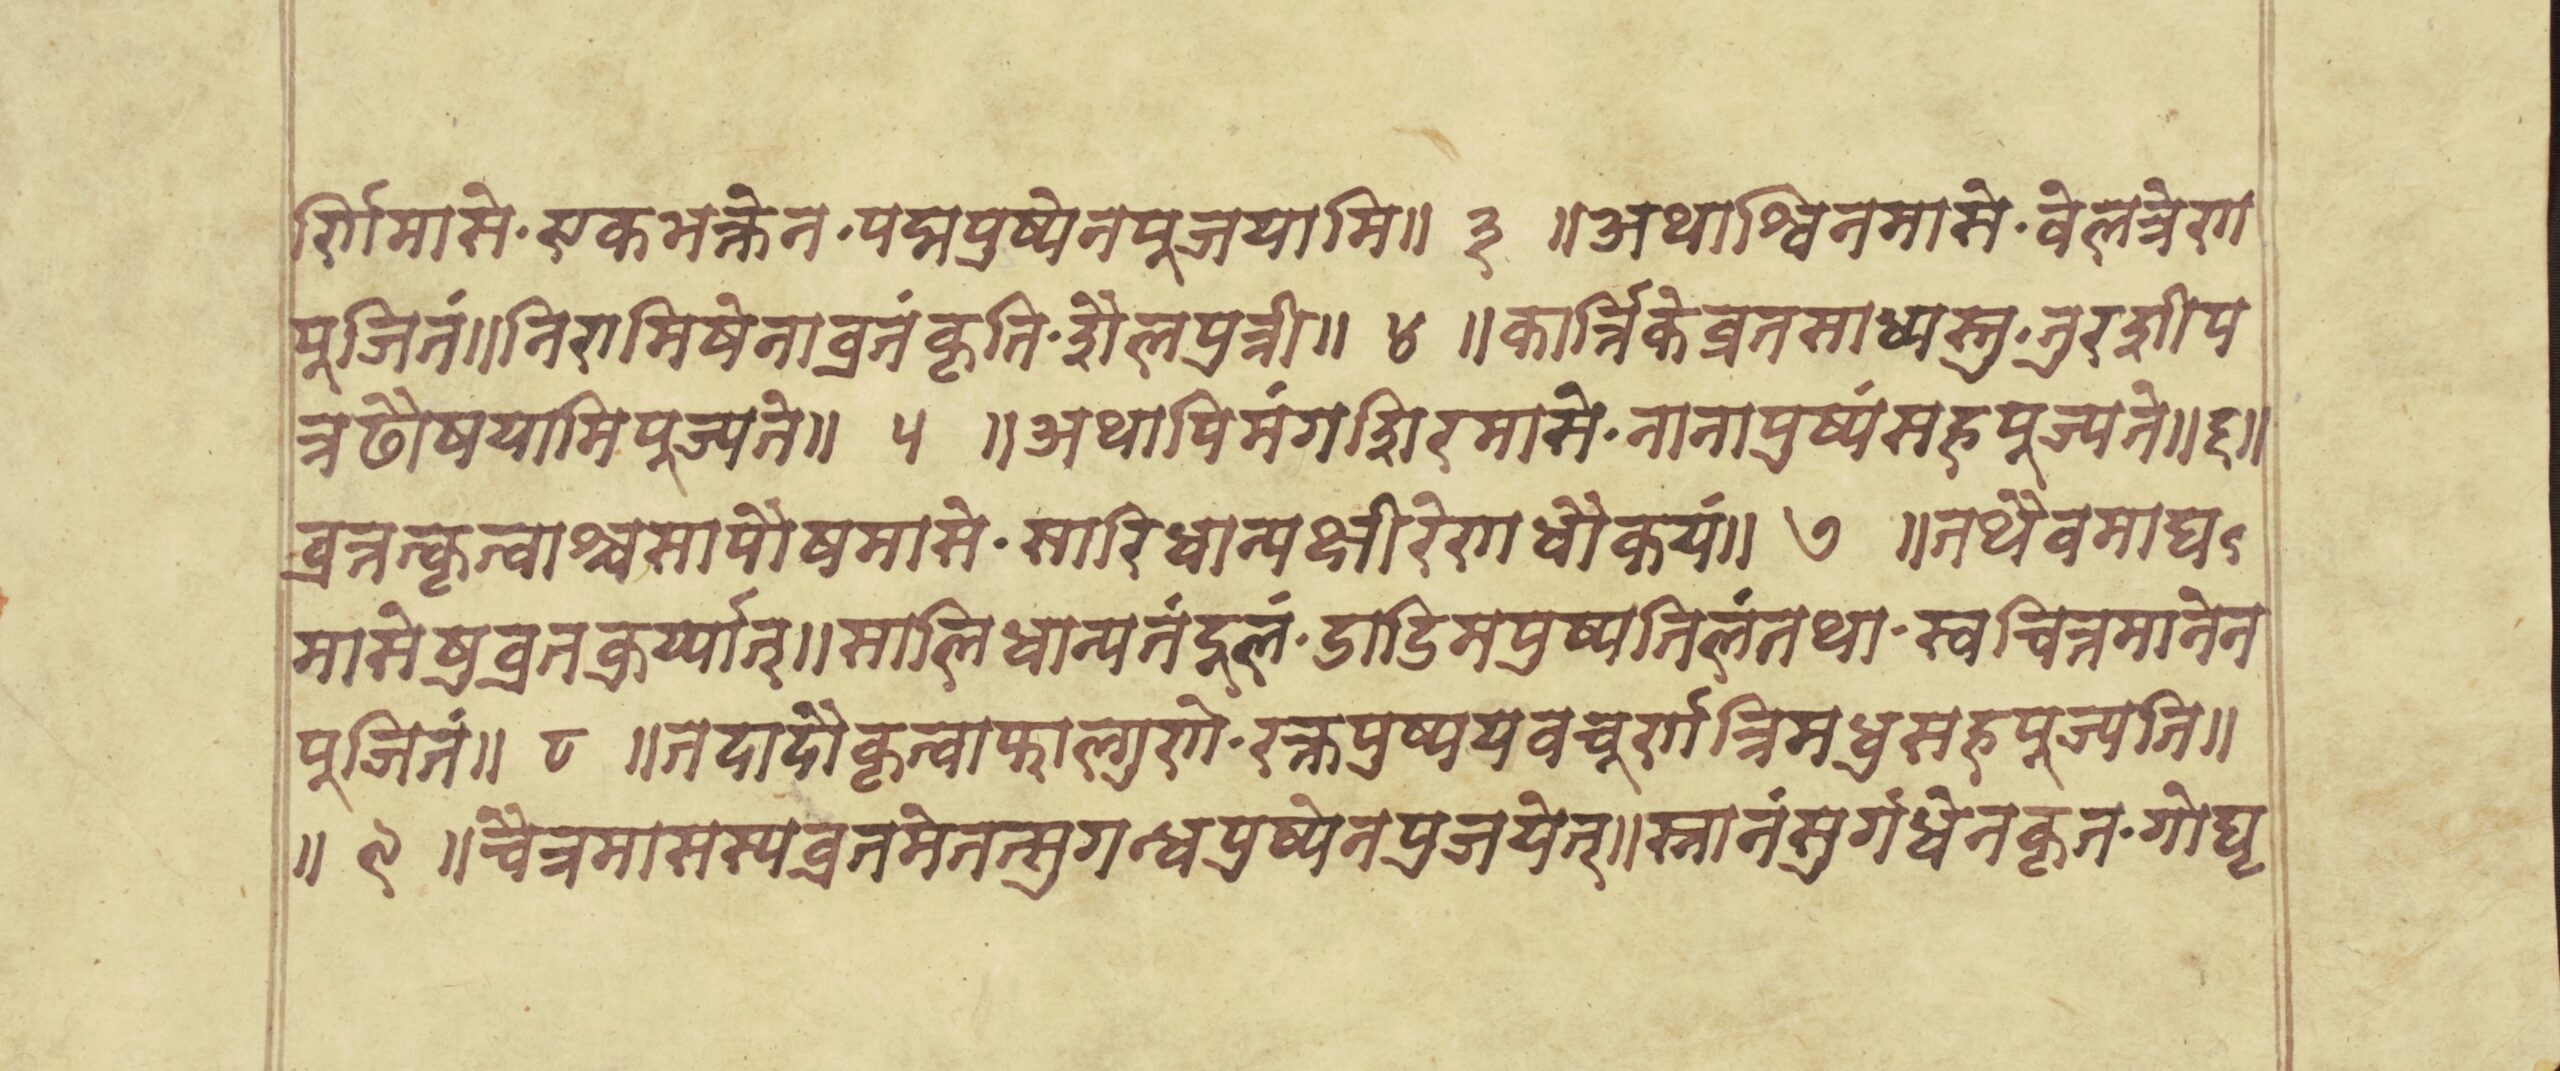 र्णिमासे·एकभक्तेन·पद्मपुष्पेनपूजयामि॥ ३ ॥अथाश्विनमासे·वेलत्रेण
पूजितं॥निरामिषेनाव्रतंकृति·शैलपुत्री॥ ४ ॥कार्त्तिकेव्रतसाध्यस्तु·तुरशीप
त्रढौषयामिपूज्यते॥ ५ ॥अथापिमंगशिरमासे·नानापुष्पंसहपूज्यते॥६॥
व्रत्तत्कृत्वाश्चमापौषमासे·सारिधान्यक्षीरेणधौकयं॥ ७ ॥तथैवमाघऽ
मासेषुव्रतकुर्य्यात्॥सालिधान्यतंदुलं·डाडिमपुष्पतिलंतथा·स्वचित्तमानेन
पूजितं॥ ८ ॥तदादौकृत्वाफाल्गुणे·रक्तपुष्पयवचूर्णत्रिमधुसहपूज्यति॥
॥ ९ ॥चैत्रमासस्यव्रतमेतत्सुगन्धपुष्पेनपुजयेत्॥स्नानंसुगंधेनकृत·गोघृ